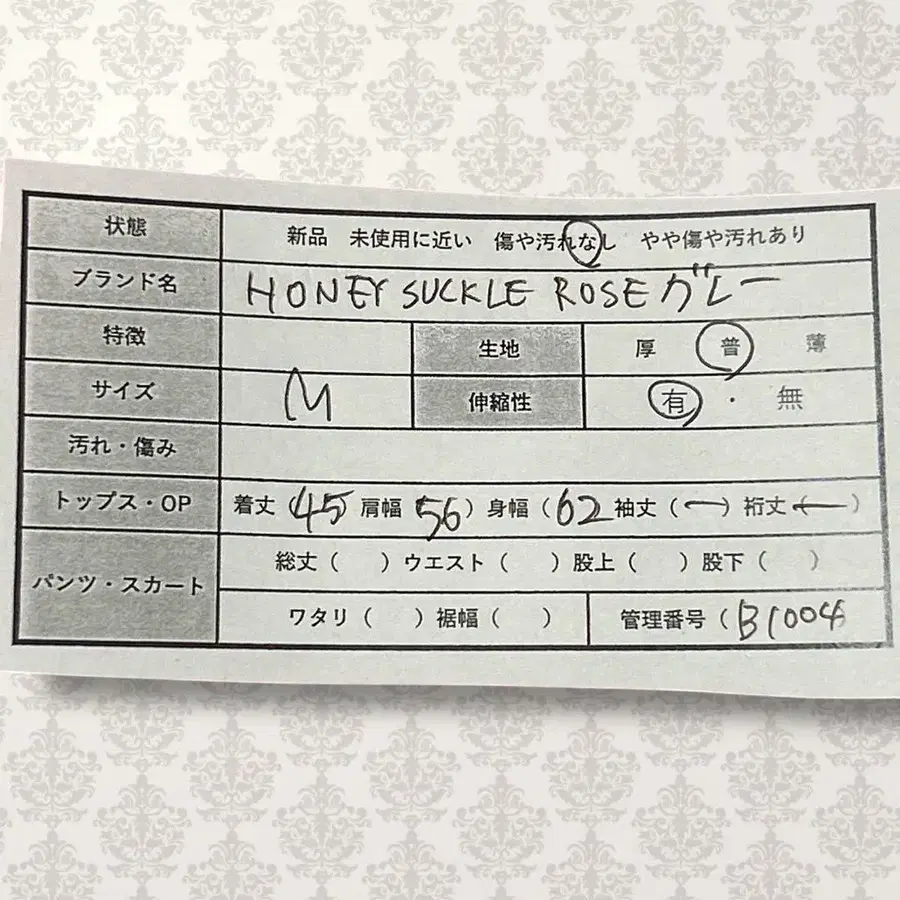 状態 新品 未使用に近い 傷や汚れなし やや傷や汚れあり
ブランド名 HONEY SUCKLE ROSE グレー
特徴 生地 厚 普 薄
サイズ M 伸縮性 有・無
汚れ・傷み
トップス・OP 着丈(45 肩幅 56)身幅(62 袖丈(ー)裄丈 ー)
パンツ・スカート 総丈( )ウエスト( )股上( )股下( )
ワタリ( )裾幅( ) 管理番号(B1004